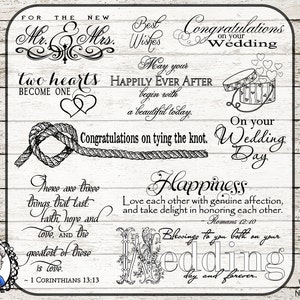 FOR THE NEW
Mr. & Mrs.
Best
Wishes
Congratulations
on your
Wedding
two hearts
BECOME ONE
May your
HAPPILY EVER AFTER
begin with
a beautiful today.
Congratulations on tying the knot.
On your
Wedding
Day
There are three
things that last
Faith, hope and
love, and the
greatest of these
is love.
~ 1 CORINTHIANS 13:13
Happiness
Love each other with genuine affection,
and take delight in honoring each other.
Romans 12:10
Blessings to you both on your
Wedding
day and forever.